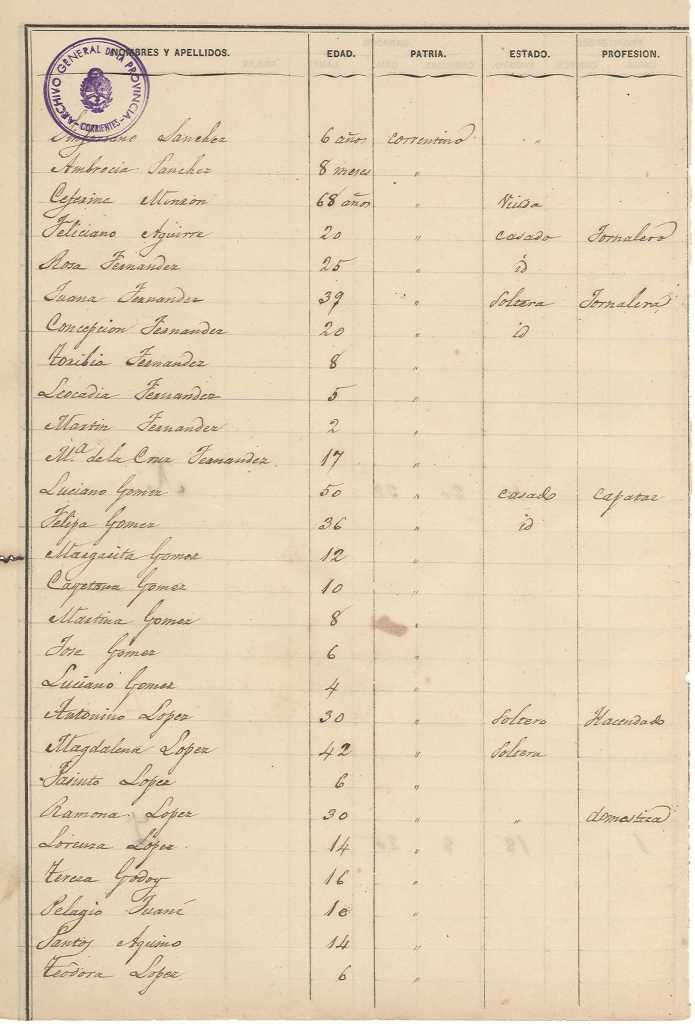 NOMBRES Y APELLIDOS. EDAD. PATRIA. ESTADO. PROFESION.
ARCHIVO GENERAL DE LA PROVINCIA
CORRIENTES
Sanchez 6 años correntino " "
Ambrocia Sanchez 8 meses "
Ceferina Monzon 68 años " Viuda
Feliciano Aguirre 20 " casado Jornalero
Rosa Fernandez 25 " id
Juana Fernandez 39 " Soltera Jornalera
Concepcion Fernandez 20 " id
Toribia Fernandez 8 "
Leocadia Fernandez 5 "
Martin Fernandez 2 "
Mª de la Cruz Fernandez 17 "
Luciano Gomez 50 " casado capataz
Felipa Gomez 36 " id
Margarita Gomez 12 "
Cayetana Gomez 10 "
Martina Gomez 8 "
Jose Gomez 6 "
Luciano Gomez 4 "
Antonino Lopez 30 " Soltero Hacendado
Magdalena Lopez 42 " Soltera
Jasinto Lopez 6 "
Ramona Lopez 30 " " domestica
Lorenza Lopez 14 "
Teresa Godoy 16 "
Pelagio 10 "
Santos Aquino 14 "
Teodora Lopez 6 "